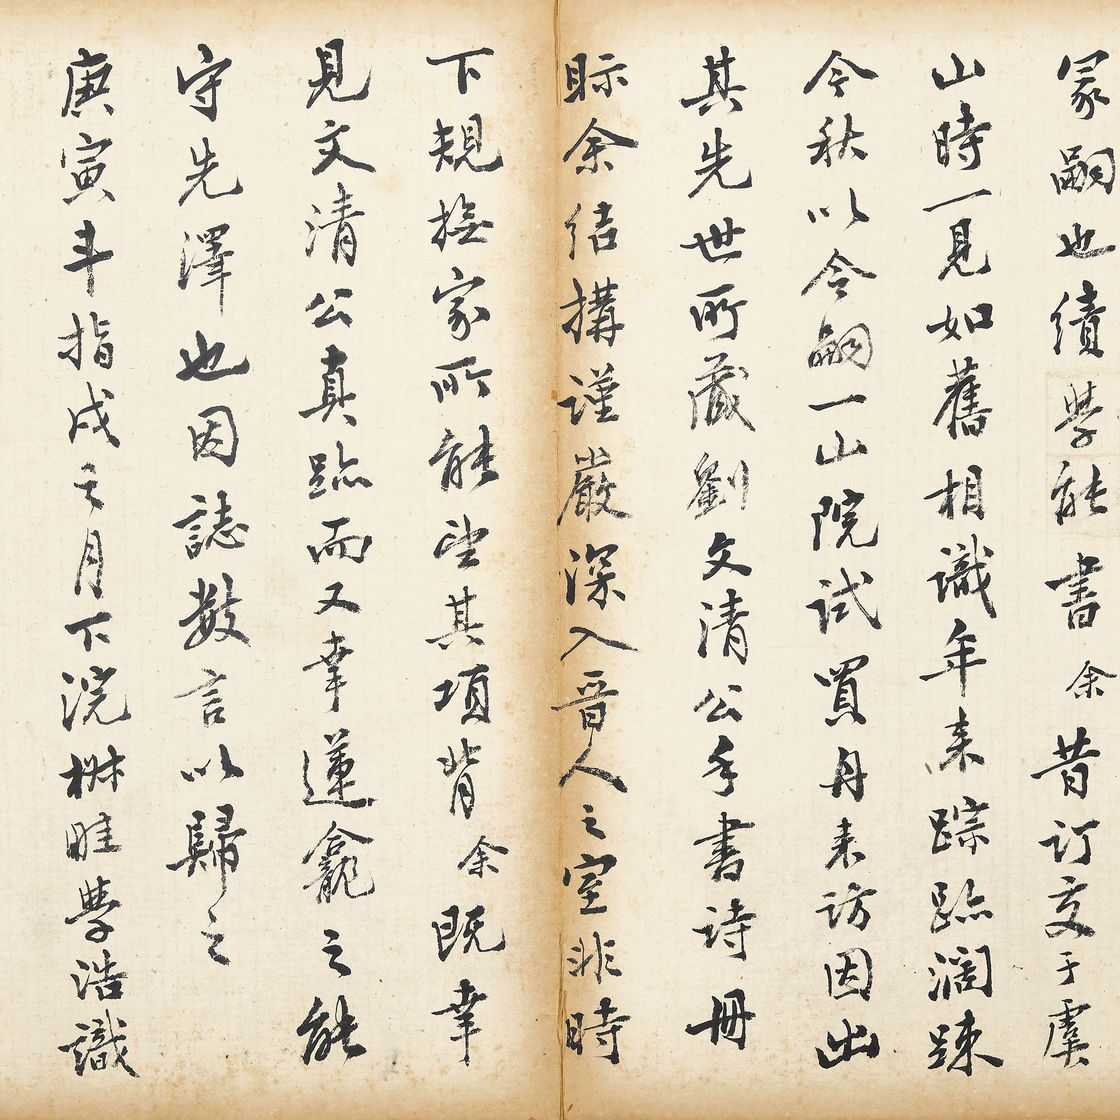 冢嗣也績學能書余昔订交于虞
山時一見如舊相識年来踪跡濶踈
今秋以令嗣一山院試買舟来訪因出
其先世所藏劉文清公手書詩冊
眎余结搆謹嚴深入晋人之室非時
下規撫家所能望其項背余既幸
見文清公真跡而又幸蓮龕之能
守先澤也因誌數言以歸之
庚寅斗指戌之月下浣桝畦學浩識